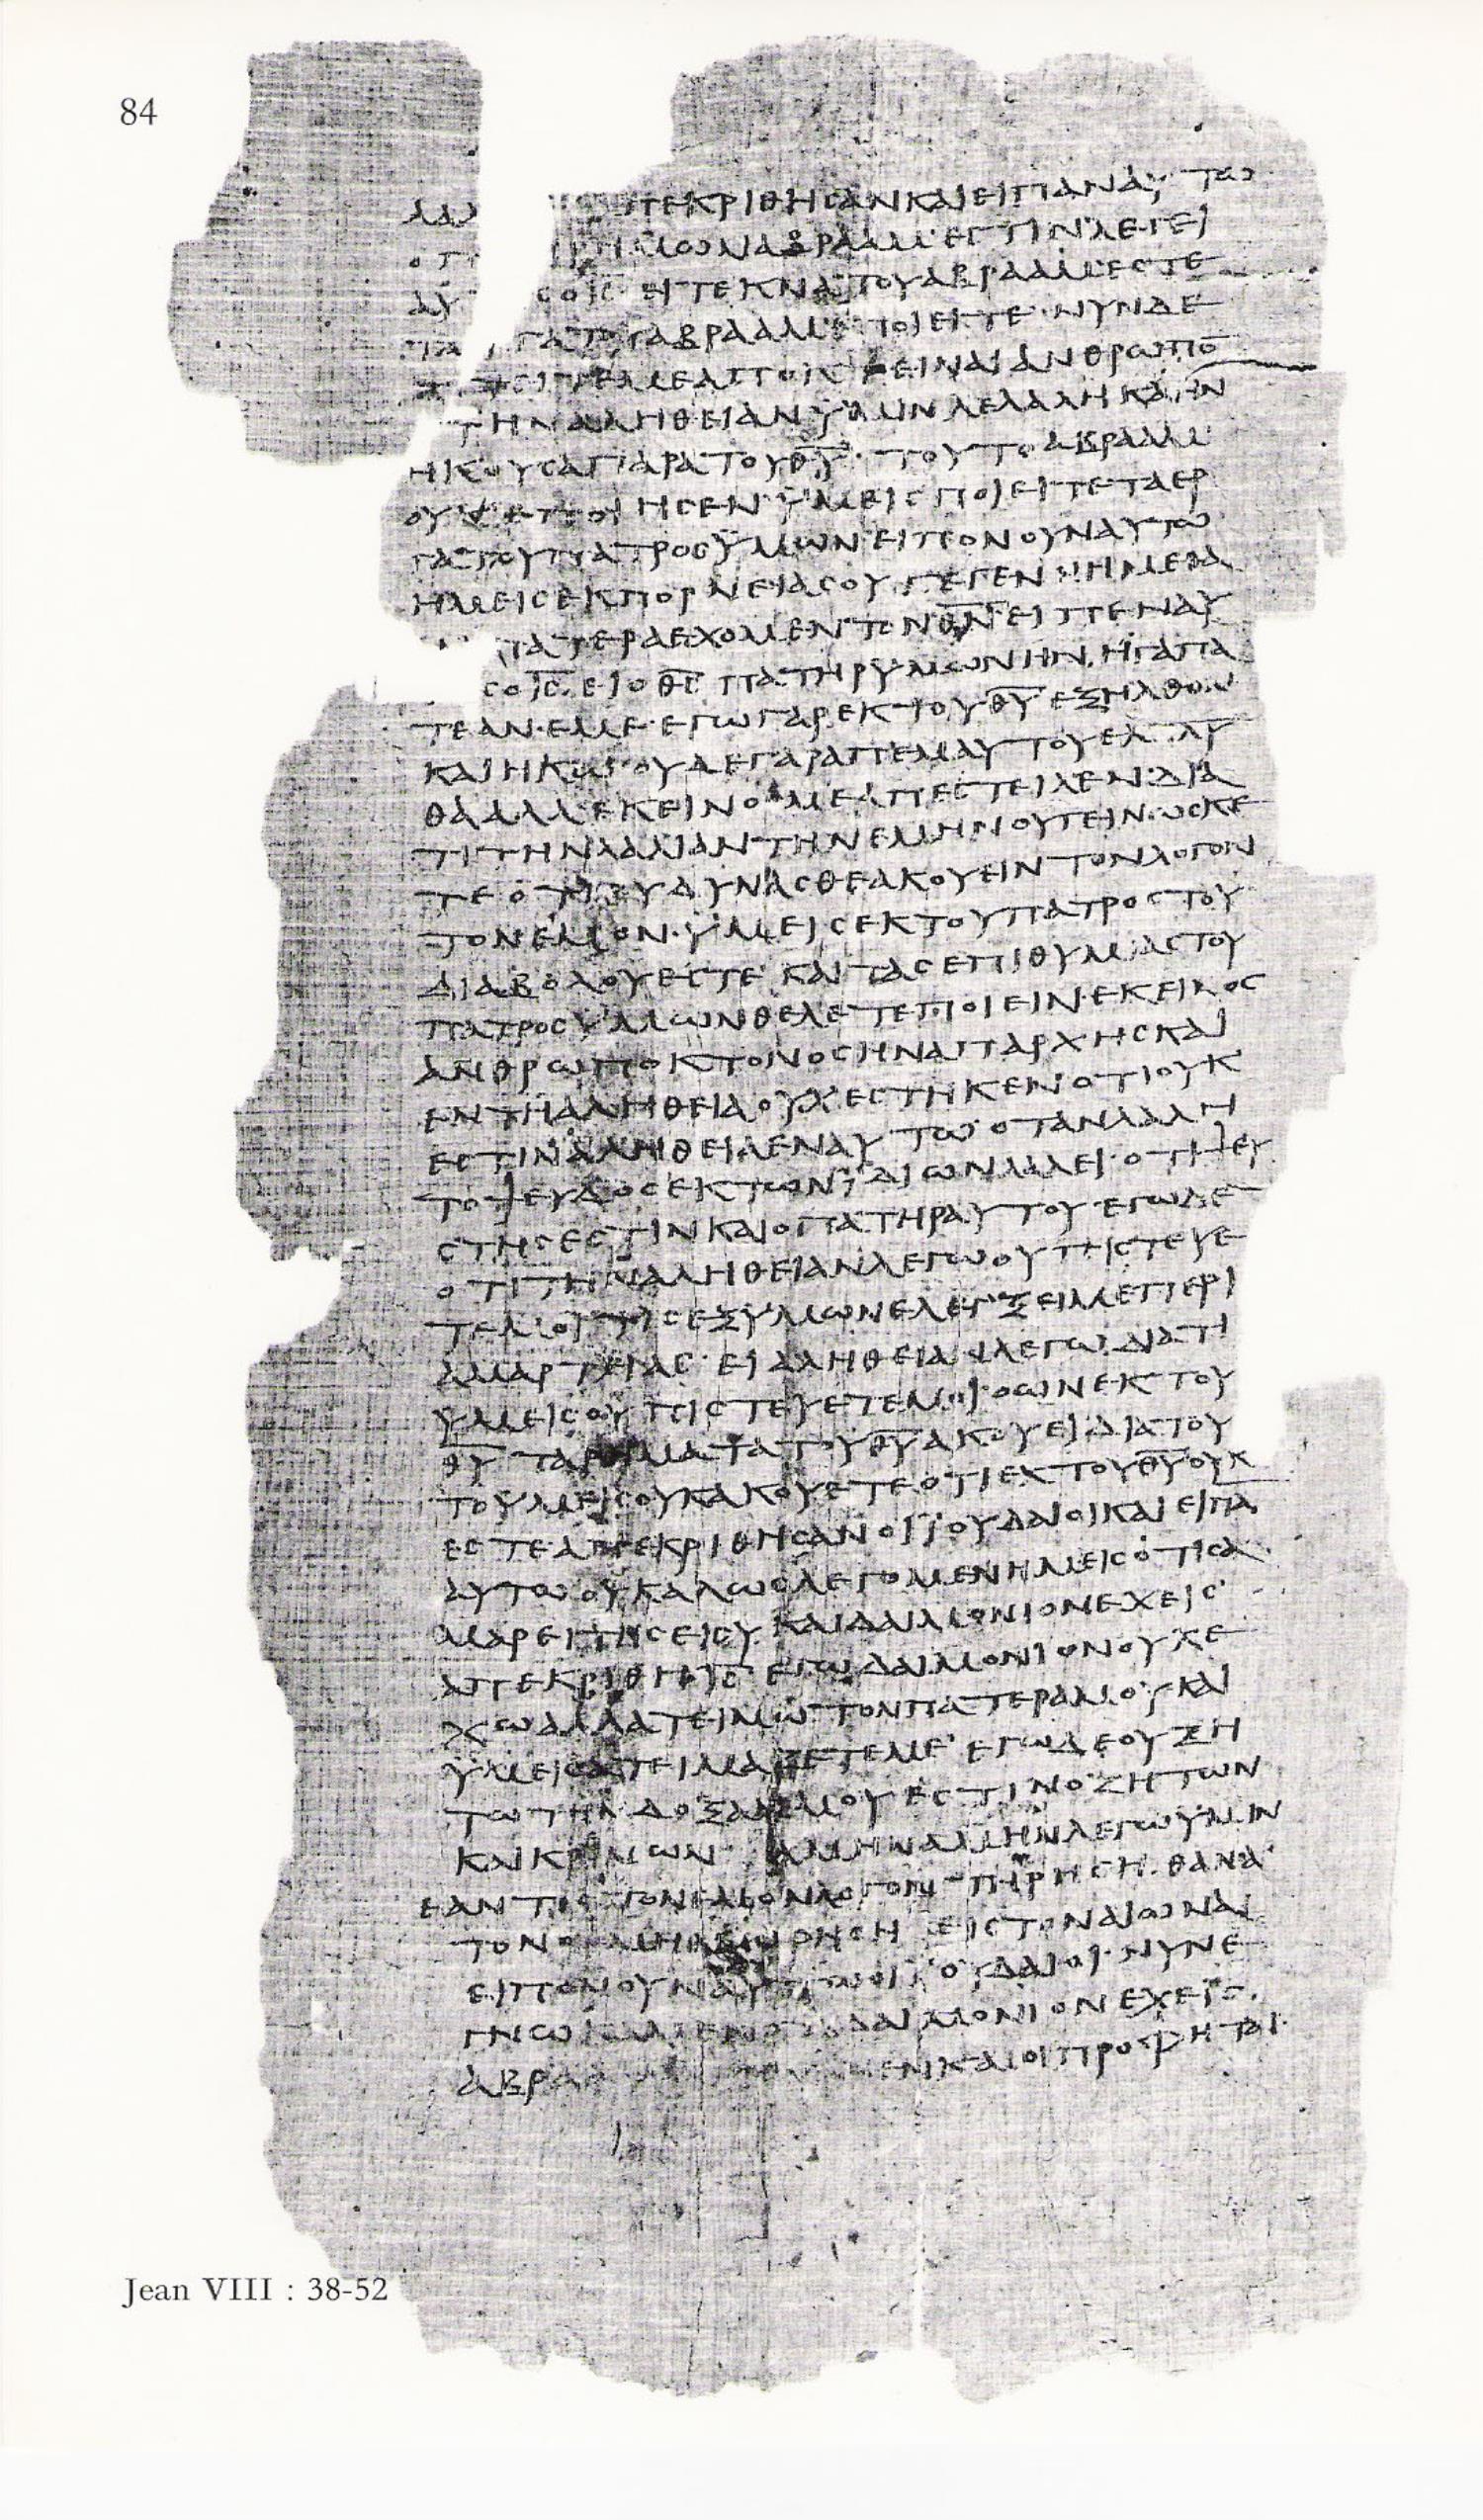 84
λαλ τεκριθησανκαιειπαναυτω
οτι ημωναβρααμ·εστιν·λεγει
αυ σοις̅·ειτεκνατουαβρααμεστε
τα γα τουαβρααμ ποιειτε·νυνδε
ζητειτεμεαποκτειναιανθρωπο̅
τηναληθειανϋμινλελαληκαην
ηκουσαπαρατουθ̅υ̅·τουτοαβρααμ
ουκεποιησεν·ϋμειςποιειτεταερ
γατουπατροσϋμων·ειπονουναυτω
ημεισεκπορνειασουγεγεννημεθα
πατεραεχομεντονθ̅ν̅·ειπεναυ
σοις̅·ειοθ̅ς̅πατηρϋμωνην·ηγαπα
τεαν·εμε·εγωγαρεκτουθ̅υ̅εξηλθον
καιηκω·ουδεγαραπεμαυτουεληλυ
θααλλεκεινοσμεαπεστειλεν·δια
τιτηνλαλιαντηνεμηνουγεινωσκε
τεοτιουδυνασθεακουειντονλογον
τονεμον·ϋμεισεκτουπατροστου
διαβολουεστε·καιτασεπιθυμιαστου
πατροσϋμωνθελετεποιειν·εκεινος
ανθρωποκτονοσηναπαρχησκαι
εντηαληθειαουχεστηκεν·οτιουκ
εστιναληθειαεναυτω·οτανλαλη
τοψευδοσεκτωνϊδιωνλαλει·οτιψευ
στησεστινκαιοπατηραυτου·εγωδε
οτιτηναληθειανλεγωουπιστευε
τεμοι·τισεξϋμωνελεγξειμεπερι
αμαρτειας·ειαληθειανλεγω·διατι
ϋμεισουπιστευετεμοι·οωνεκτου
θ̅υ̅ταρηματατουθ̅υ̅ακουει·διατου
τοϋμεισουκακουετεοτιεκτουθ̅υ̅ουκ
εστεαπεκριθησανοιϊουδαιοικαιειπα̅
αυτωουκαλωσλεγομενημεισοτισα
μαρειτησεισυκαιδαιμονιονεχεις·
απεκριθηις̅·εγωδαιμονιονουκε
χωαλλατειμωτονπατεραμου·και
ϋμεισατειμαζετεμε·εγωδεουζη
τωτηνδοξανμουεστινοζητων
καικρινων·αμηναμηνλεγωϋμιν
εαντιστονεμονλογοντηρηση·θανα
τονουμηθεωρησηειστοναιωνα
ειπονουναυτωοιϊουδαιοι·νυνε
γνω δαιμονιονεχεις·
αβρα ενκαιοιπροφηται·
Jean VIII : 38-52